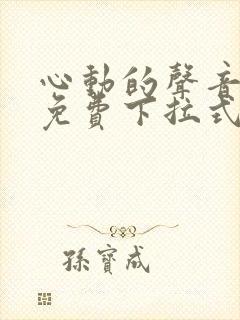 心動的聲音
免費下拉式
孫寶成